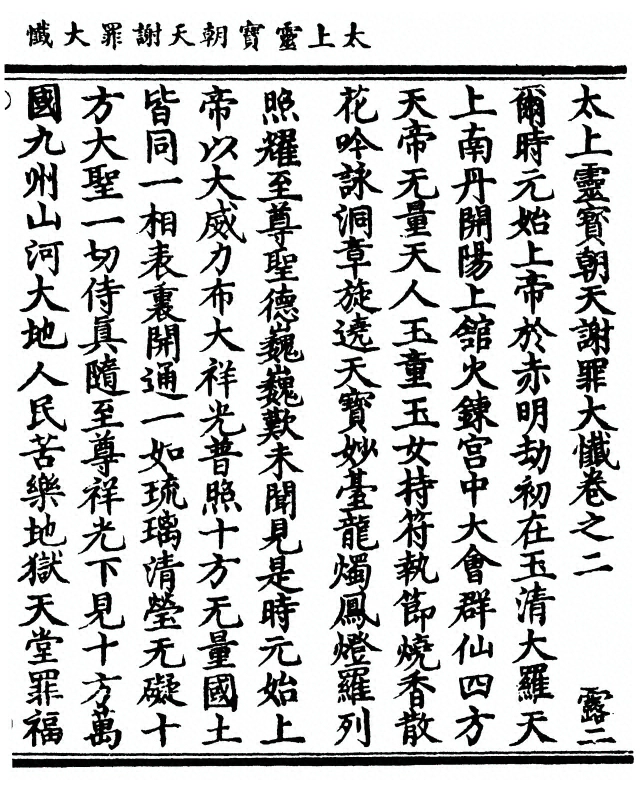 太上靈寶朝天謝罪大懺
太上靈寶朝天謝罪大懺卷之二 露二
爾時元始上帝於赤明劫初在玉清大羅天
上南丹開陽上舘火鍊宫中大會群仙四方
天帝无量天人玉童玉女持符執節燒香散
花吟詠洞章旋遶天寶妙臺龍燭鳳燈羅列
照耀至尊聖德巍巍歎未聞見是時元始上
帝以大威力布大祥光普照十方无量國土
皆同一相表裏開通一如琉璃清瑩无礙十
方大聖一切侍真隨至尊祥光下見十方萬
國九州山河大地人民苦樂地獄天堂罪福